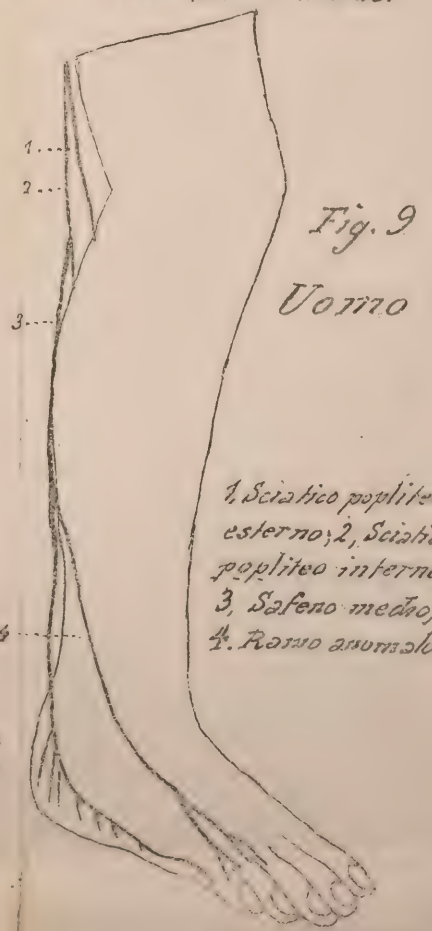 1
2
3
4
Fig. 9
Uomo
1, Sciatico poplite
esterno; 2, Sciati
popliteo interno
3, Safeno medio,
4. Ramo anomalo